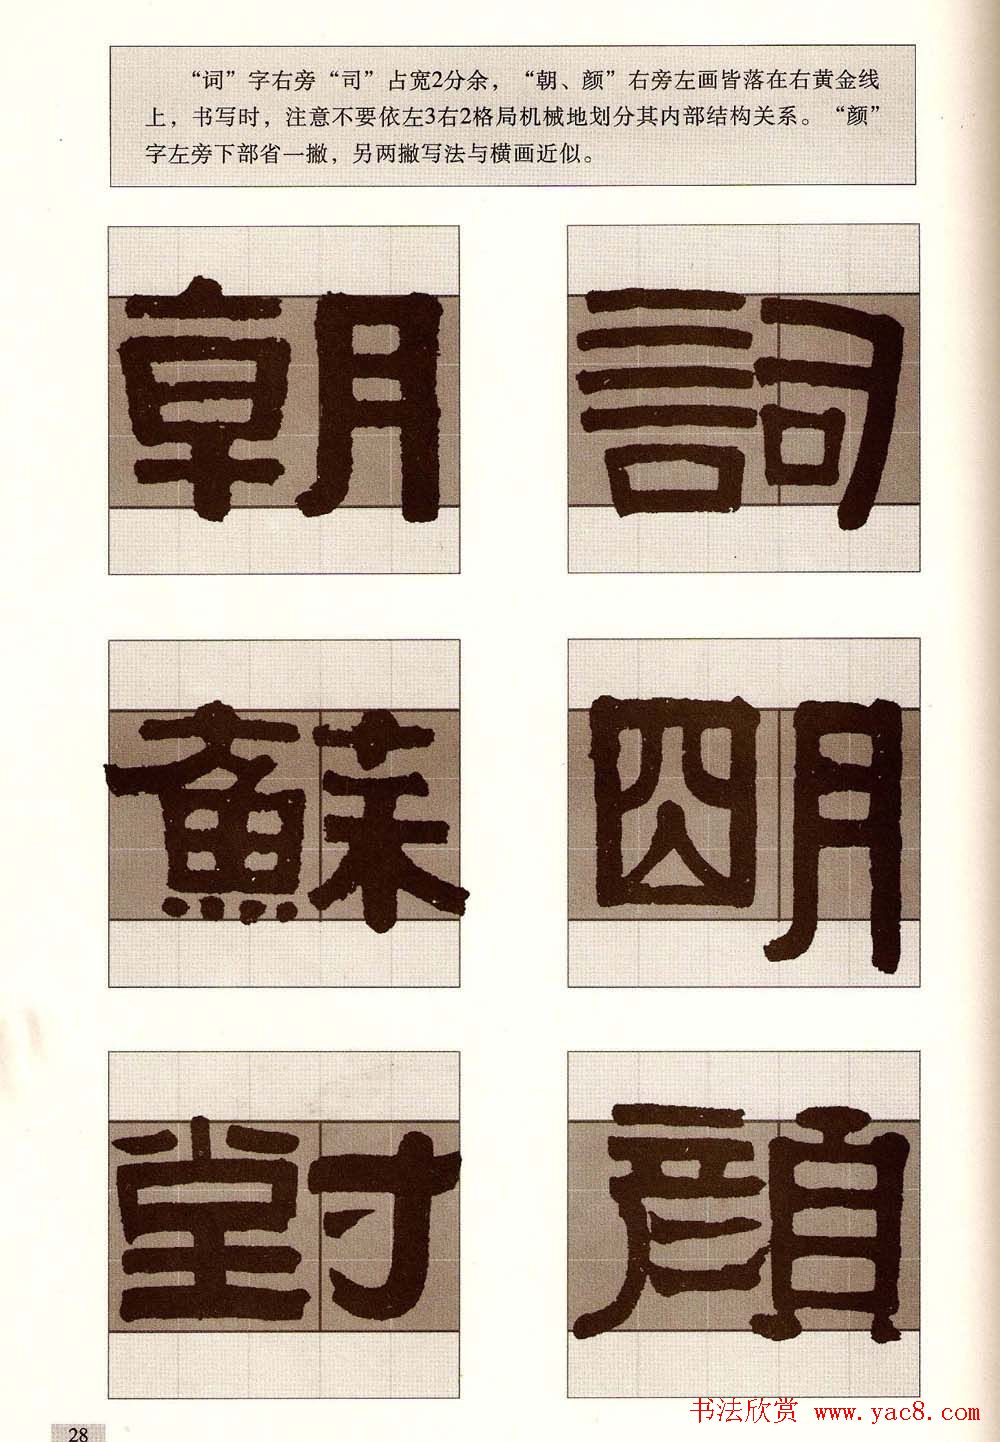 “词”字右旁“司”占宽2分余，“朝、颜”右旁左画皆落在右黄金线
上，书写时，注意不要依左3右2格局机械地划分其内部结构关系。“颜”
字左旁下部省一撇，另两撇写法与横画近似。
朝 詞
蘇 朙
對 顏
28
书法欣赏 www.yac8.com